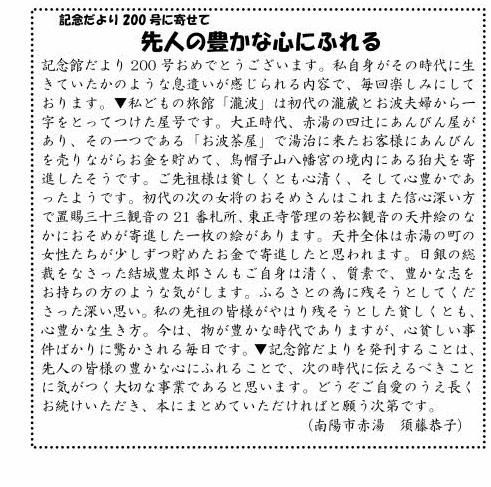 記念だより 200 号に寄せて
先人の豊かな心にふれる
記念館だより 200 号おめでとうございます。私自身がその時代に生
きていたかのような息遣いが感じられる内容で、毎回楽しみにして
おります。▼私どもの旅館「瀧波」は初代の瀧蔵とお波夫婦から一
字をとってつけた屋号です。大正時代、赤湯の四辻にあんびん屋が
あり、その一つである「お波茶屋」で湯治に来たお客様にあんびん
を売りながらお金を貯めて、烏帽子山八幡宮の境内にある狛犬を寄
進したそうです。ご先祖様は貧しくとも心清く、そして心豊かであ
ったようです。初代の次の女将のおそめさんはこれまた信心深い方
で置賜三十三観音の 21 番札所、東正寺管理の若松観音の天井絵のな
かにおそめが寄進した一枚の絵があります。天井全体は赤湯の町の
女性たちが少しずつ貯めたお金で寄進したと思われます。日銀の総
裁をなさった結城豊太郎さんもご自身は清く、質素で、豊かな志を
お持ちの方のような気がします。ふるさとの為に残そうとしてくだ
さった深い思い。私の先祖の皆様がやはり残そうとした貧しくとも、
心豊かな生き方。今は、物が豊かな時代でありますが、心貧しい事
件ばかりに驚かされる毎日です。▼記念館だよりを発刊することは、
先人の皆様の豊かな心にふれることで、次の時代に伝えるべきこと
に気がつく大切な事業であると思います。どうぞご自愛のうえ長く
お続けいただき、本にまとめていただければと願う次第です。
（南陽市赤湯　須藤恭子）